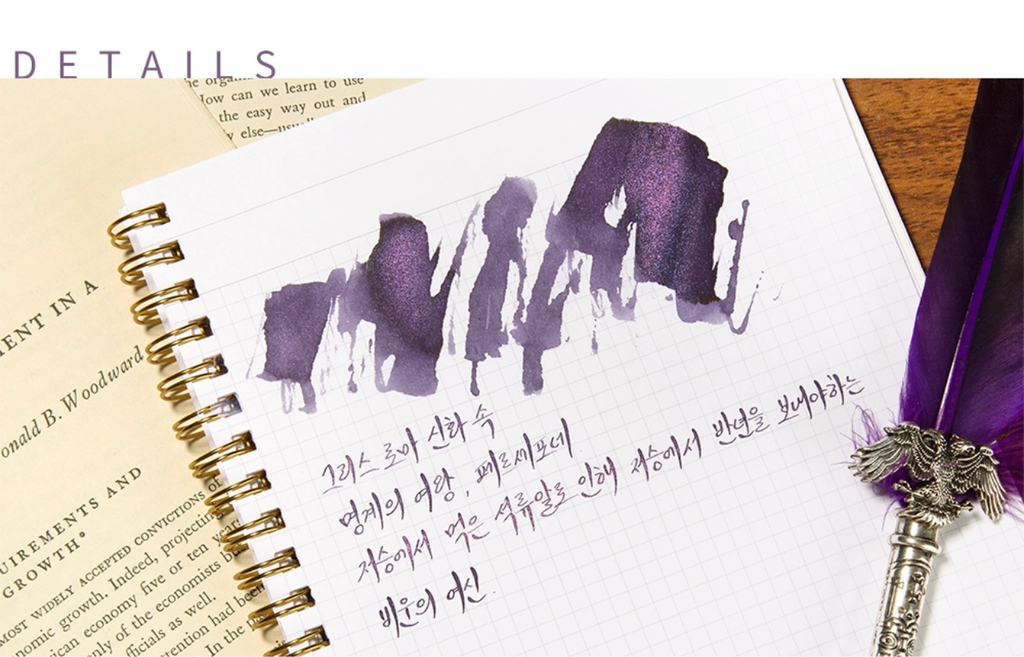 DETAILS
he organ
How can we learn to use
the easy way out and
y else—usu
MENT IN A
onald B. Woodward
UIREMENTS AND
GROWTH*
MOST WIDELY ACCEPTED CONVICTIONS of
onomic growth. Indeed, projecting
ican economy five or ten years
only of the economists b
fficials as well.
tention had been
In the
그리스 로마 신화 속
명계의 여왕, 페르세포네.
저승에서 먹은 석류알로 인해 저승에서 반년을 보내야하는
비운의 여신.